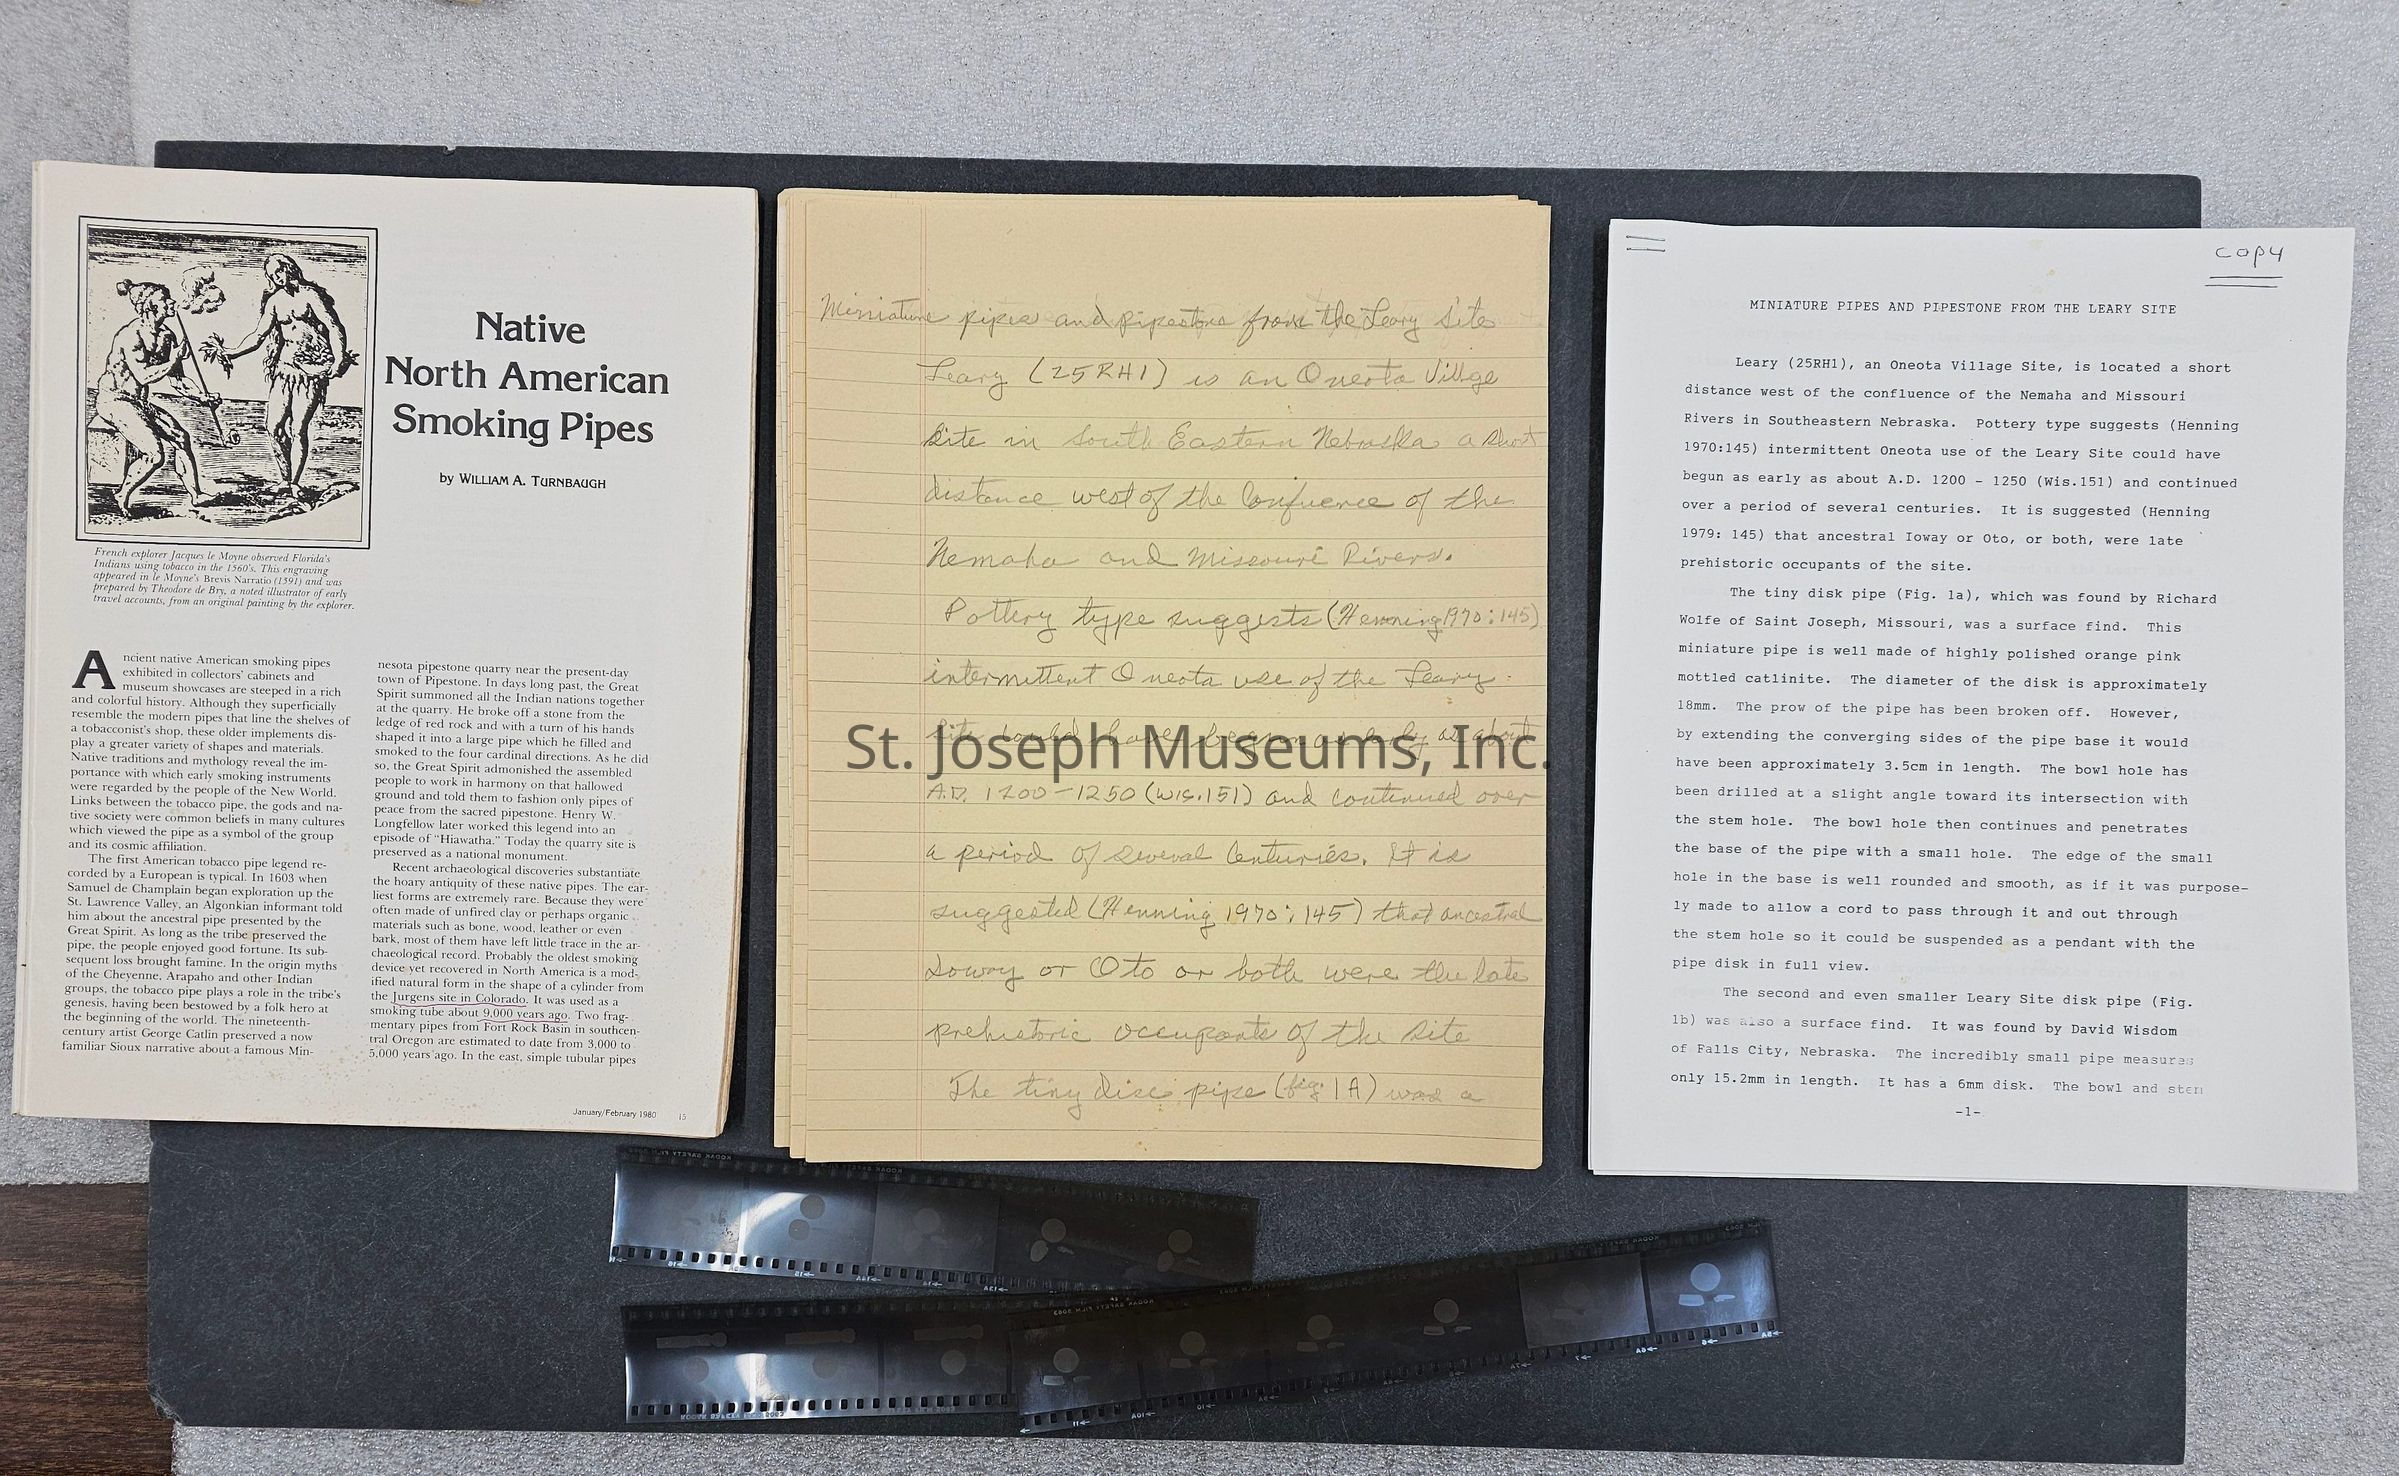 Native
North American
Smoking Pipes
by WILLIAM A. TURNBAUGH
French explorer Jacques le Moyne observed Florida's
Indians using tobacco in the 1560's. This engraving
appeared in le Moyne's Brevis Narratio (1591) and was
prepared by Theodore de Bry, a noted illustrator of early
travel accounts, from an original painting by the explorer.
Ancient native American smoking pipes
exhibited in collectors' cabinets and
museum showcases are steeped in a rich
and colorful history. Although they superficially
resemble the modern pipes that line the shelves of
a tobacconist's shop, these older implements dis-
play a greater variety of shapes and materials.
Native traditions and mythology reveal the im-
portance with which early smoking instruments
were regarded by the people of the New World.
Links between the tobacco pipe, the gods and na-
tive society were common beliefs in many cultures
which viewed the pipe as a symbol of the group
and its cosmic affiliation.
The first American tobacco pipe legend re-
corded by a European is typical. In 1603 when
Samuel de Champlain began exploration up the
St. Lawrence Valley, an Algonkian informant told
him about the ancestral pipe presented by the
Great Spirit. As long as the tribe preserved the
pipe, the people enjoyed good fortune. Its sub-
sequent loss brought famine. In the origin myths
of the Cheyenne, Arapaho and other Indian
groups, the tobacco pipe plays a role in the tribe's
genesis, having been bestowed by a folk hero at
the beginning of the world. The nineteenth-
century artist George Catlin preserved a now
familiar Sioux narrative about a famous Min-
nesota pipestone quarry near the present-day
town of Pipestone. In days long past, the Great
Spirit summoned all the Indian nations together
at the quarry. He broke off a stone from the
ledge of red rock and with a turn of his hands
shaped it into a large pipe which he filled and
smoked to the four cardinal directions. As he did
so, the Great Spirit admonished the assembled
people to work in harmony on that hallowed
ground and told them to fashion only pipes of
peace from the sacred pipestone. Henry W.
Longfellow later worked this legend into an
episode of "Hiawatha." Today the quarry site is
preserved as a national monument.
Recent archaeological discoveries substantiate
the hoary antiquity of these native pipes. The ear-
liest forms are extremely rare. Because they were
often made of unfired clay or perhaps organic
materials such as bone, wood, leather or even
bark, most of them have left little trace in the ar-
chaeological record. Probably the oldest smoking
device yet recovered in North America is a mod-
ified natural form in the shape of a cylinder from
the Jurgens site in Colorado. It was used as a
smoking tube about 9,000 years ago. Two frag-
mentary pipes from Fort Rock Basin in southcen-
tral Oregon are estimated to date from 3,000 to
5,000 years ago. In the east, simple tubular pipes
January/February 1980 15
Miniature pipes and pipestone from the Leary Site
Leary (25RH1) is an Oneota Villge
site in South Eastern Nebraska a short
distance west of the Confuence of the
Nemaha and Missouri Rivers.
Pottery type suggests (Henning 1970:145)
intermittent Oneota use of the Leary
site could have begun as early as about
A.D. 1200-1250 (Wis.151) and continued over
a period of several Centuries. It is
suggested (Henning 1970:145) that ancestral
Ioway or Oto or both were the late
prehistoric occupants of the site
The tiny disc pipe (fig. 1A) was a
St. Joseph Museums, Inc.
copy
MINIATURE PIPES AND PIPESTONE FROM THE LEARY SITE
Leary (25RH1), an Oneota Village Site, is located a short
distance west of the confluence of the Nemaha and Missouri
Rivers in Southeastern Nebraska. Pottery type suggests (Henning
1970:145) intermittent Oneota use of the Leary Site could have
begun as early as about A.D. 1200 - 1250 (Wis.151) and continued
over a period of several centuries. It is suggested (Henning
1979: 145) that ancestral Ioway or Oto, or both, were late
prehistoric occupants of the site.
The tiny disk pipe (Fig. 1a), which was found by Richard
Wolfe of Saint Joseph, Missouri, was a surface find. This
miniature pipe is well made of highly polished orange pink
mottled catlinite. The diameter of the disk is approximately
18mm. The prow of the pipe has been broken off. However,
by extending the converging sides of the pipe base it would
have been approximately 3.5cm in length. The bowl hole has
been drilled at a slight angle toward its intersection with
the stem hole. The bowl hole then continues and penetrates
the base of the pipe with a small hole. The edge of the small
hole in the base is well rounded and smooth, as if it was purpose-
ly made to allow a cord to pass through it and out through
the stem hole so it could be suspended as a pendant with the
pipe disk in full view.
The second and even smaller Leary Site disk pipe (Fig.
1b) was also a surface find. It was found by David Wisdom
of Falls City, Nebraska. The incredibly small pipe measures
only 15.2mm in length. It has a 6mm disk. The bowl and stem
-1-
KODAK SAFETY FILM 5063